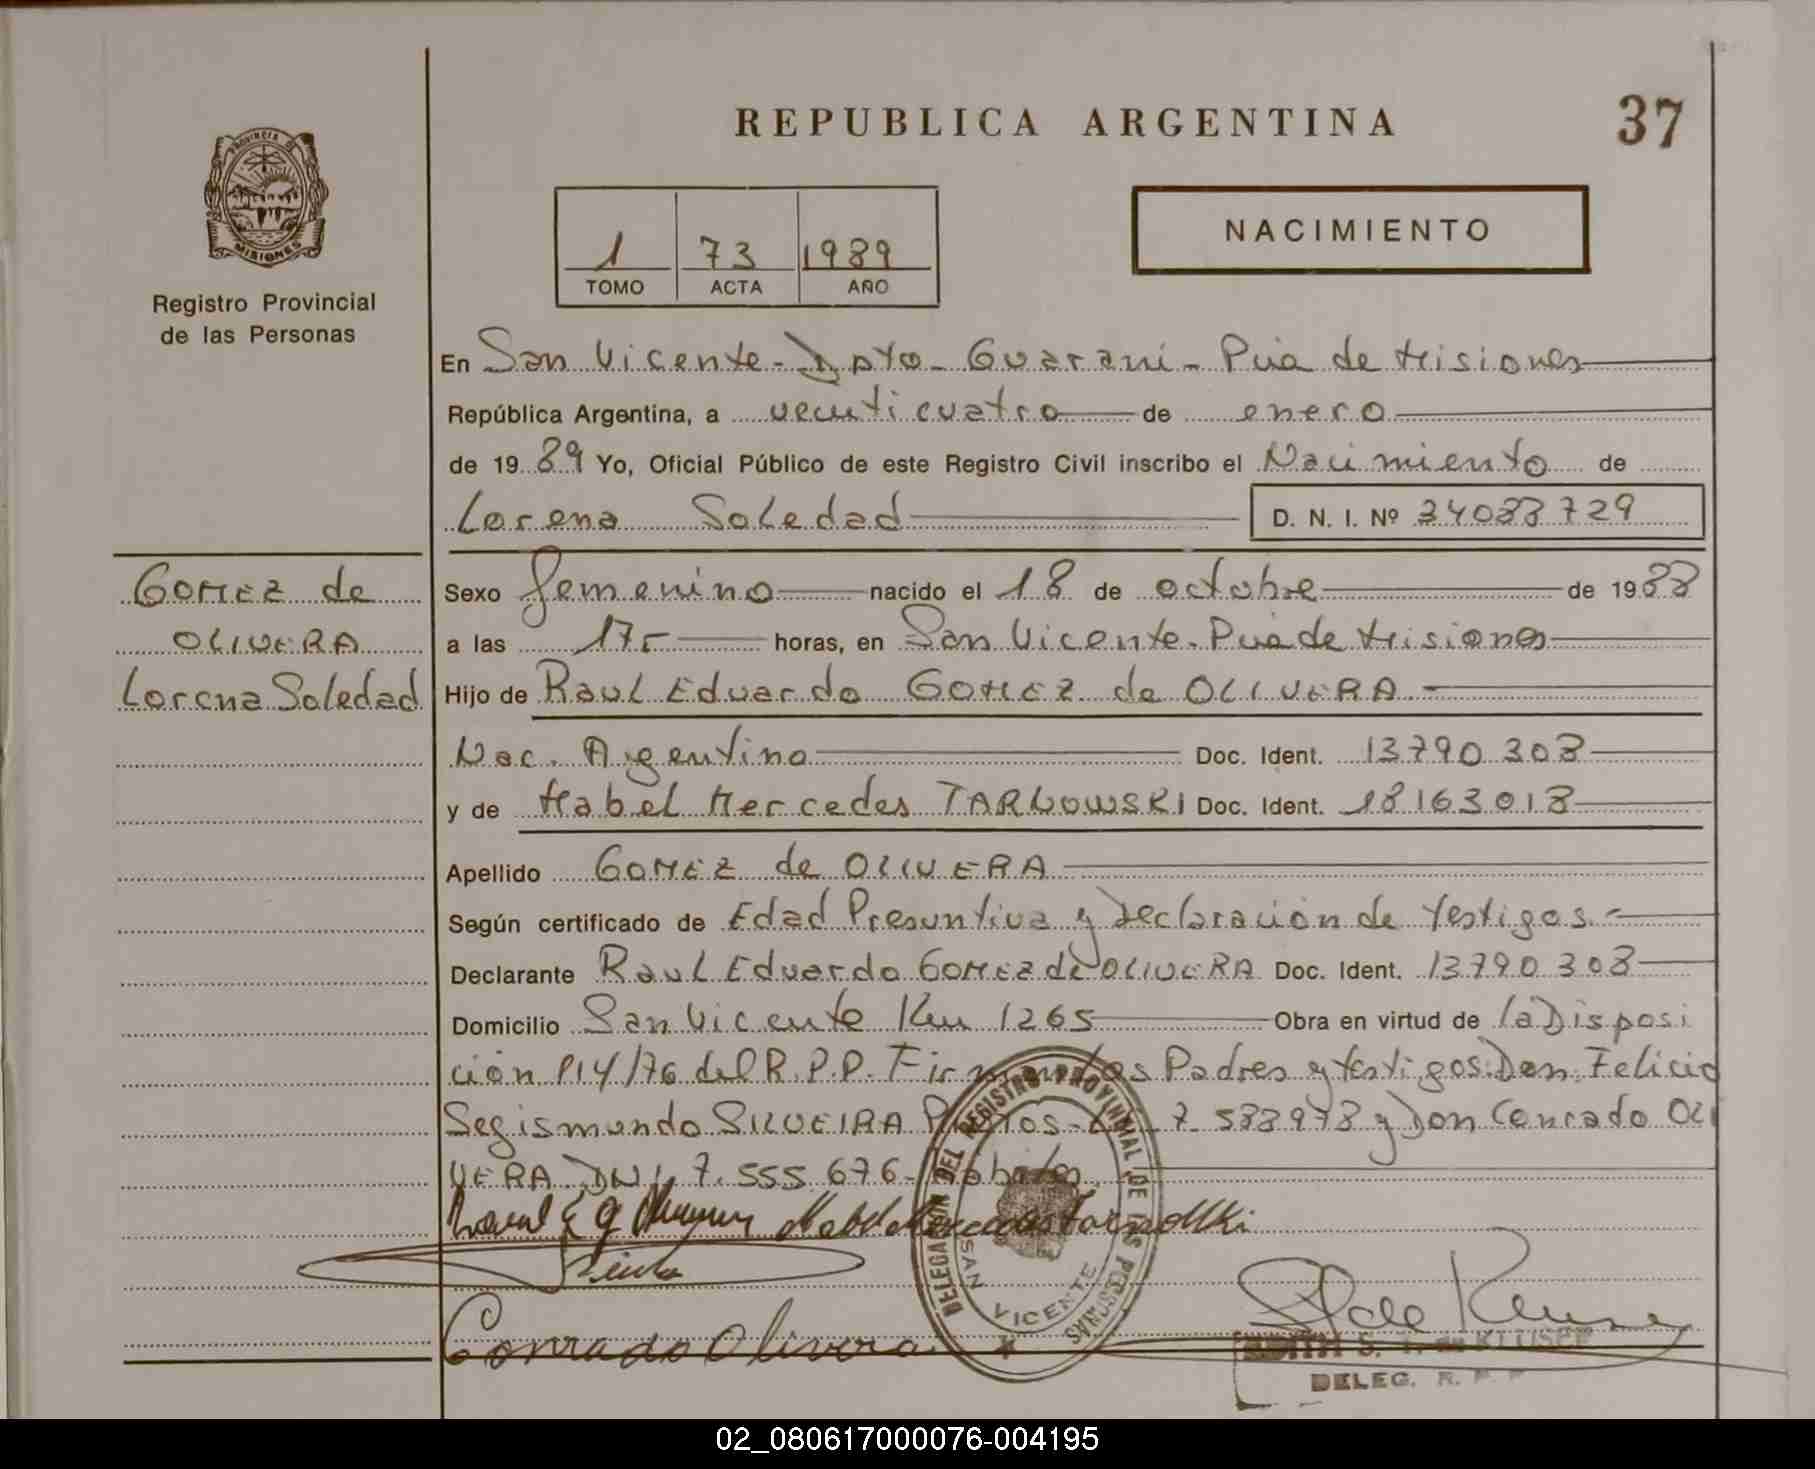 REPUBLICA ARGENTINA
37
PROVINCIA DE
MISIONES
Registro Provincial
de las Personas
1 73 1989
TOMO ACTA AÑO
NACIMIENTO
En San Vicente - Dpto - Guarani - Pcia de Misiones
República Argentina, a veinticuatro de enero
de 1989 Yo, Oficial Público de este Registro Civil inscribo el Nacimiento de
Lorena Soledad D. N. I. Nº 34088729
GOMEZ de
OLIVERA
Lorena Soledad
Sexo femenino nacido el 18 de octubre de 1988
a las 17 horas, en San Vicente - Pcia de Misiones
Hijo de Raul Eduardo GOMEZ de OLIVERA
Nac. Argentina Doc. Ident. 13790308
y de Mabel Mercedes TARNOWSKI Doc. Ident. 18163018
Apellido GOMEZ de OLIVERA
Según certificado de Edad Presuntiva y Declaración de Testigos.
Declarante Raul Eduardo GOMEZ de OLIVERA Doc. Ident. 13790308
Domicilio San Vicente Km 1265 Obra en virtud de la Disposi
ción 814/76 del R.P.P. Firman los Padres y testigos: Don Felicio
Segismundo SILVEIRA 7.588978 y Don Conrado OLI
VERA DNI. 7.555.676 -
DELEGACION DEL REGISTRO PROVINCIAL DE LAS PERSONAS
SAN VICENTE
Conrado Olivera
EDITH S. de KLUSEP
DELEG. R. P. P.
02_080617000076-004195